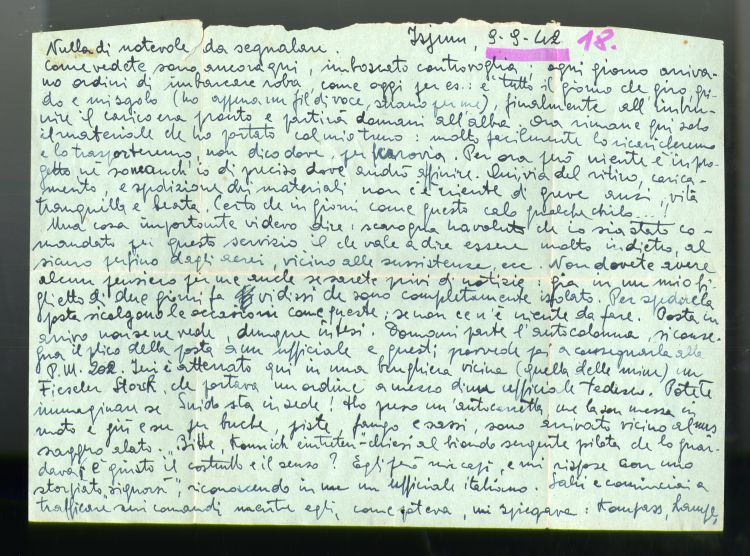 Isjum, 9-9-42 18.
Nulla di notevole da segnalare.
Come vedete sono ancora qui, imboscato controvoglia, ogni giorno arriva-
no ordini di imbarcare roba, come oggi per es.: è tutto il giorno che giro, gri-
do e mi sgolo (ho appena un fil di voce, strano per me), finalmente all'imbru-
nire il carico era pronto e partirà domani all'alba. Ora rimane qui solo
il materiale che ho portato col mio treno: molto facilmente lo ricaricheremo
e lo trasporteremo, non dico dove, per ferrovia. Per ora però niente è in pro-
getto né so neanch'io di preciso dove andrò a finire. Qui via del ritiro, carica-
mento, e spedizione dei materiali non c'è niente di greve anzi, vita
tranquilla e beata. Certo che in giorni come questo calo qualche chilo....
Una cosa importante vi devo dire: scarogna ha voluto che io sia stato co-
mandato per questo servizio il che vale a dire essere molto indietro, al
sicuro perfino dagli aerei, vicino alle sussistenze ecc. Non dovete avere
alcun pensiero per me anche se sarete privi di notizie: già in un mio bi-
glietto di due giorni fa vi dissi che sono completamente isolato. Per spedire la
posta si colgono le occasioni come queste; se non ce n'è niente da fare. Posta in
arrivo non se ne vede, dunque intesi. Domani parte l'autocolonna, si conse-
gna il plico della posta a un ufficiale e questi provvede per a consegnarla alla
P.M. 202. Ieri è atterrato qui in una brughiera vicina (quella delle mine) un
Fieseler Storch, che portava un ordine a mezzo d'un ufficiale tedesco. Potete
immaginare se Guido sta in sede! Ho preso un'autocarretta, me la son messa in
moto e giù e su per buche, piste fango e sassi, sono arrivato vicino al mes
saggero alato. "Bitte kann ich eintreten" chiesi al biondo sergente pilota che lo guar-
dava; è giusto il costrutto e il senso? Egli però mi capì, e mi rispose con uno
storpiato "signorsì", riconoscendo in me un ufficiale italiano. Salii e cominciai a
trafficare sui comandi mentre egli, come poteva, mi spiegava: Kompass, Lampe,